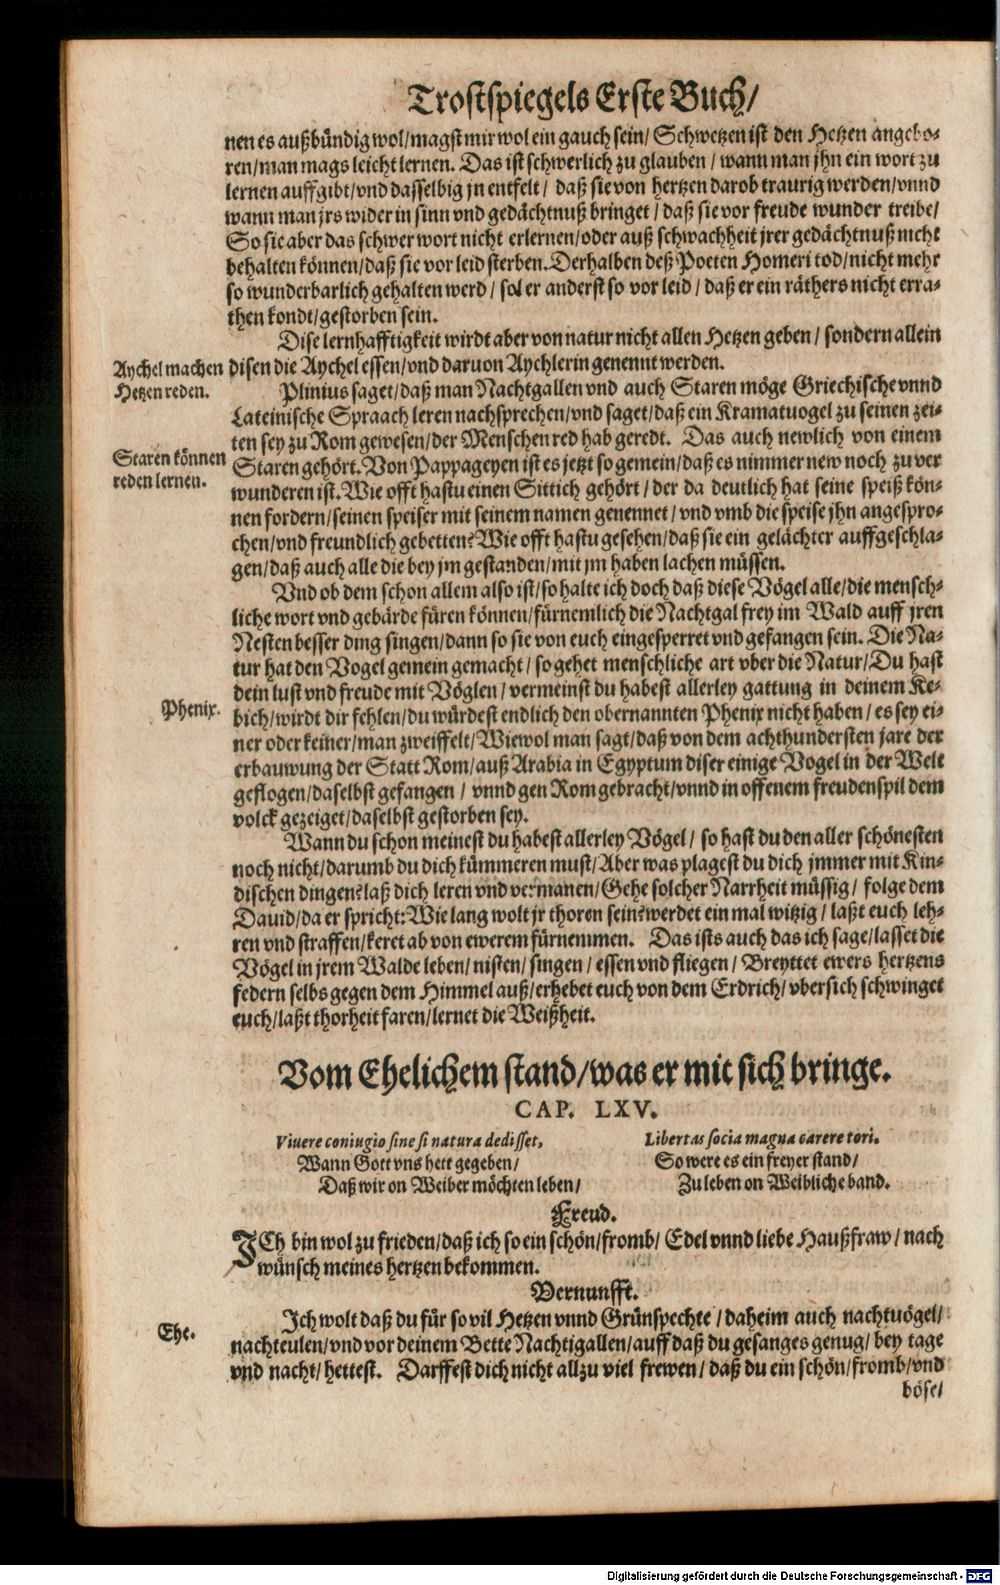 Trostspiegels Erste Buch/
nen es außbündig wol/magst mir wol ein gauch sein/ Schwetzen ist den Hetzen angebo-
ren/man mags leicht lernen. Das ist schwerlich zu glauben/ wann man jhn ein wort zu
lernen auffgibt/vnd dasselbig jn entfelt/ daß sie von hertzen darob traurig werden/vnnd
wann man jrs wider in sinn vnd gedächtnuß bringet/ daß sie vor freude wunder treibe/
So sie aber das schwer wort nicht erlernen/oder auß schwachheit jrer gedächtnuß nicht
behalten können/daß sie vor leid sterben. Derhalben deß Poeten Homeri tod/nicht mehr
so wunderbarlich gehalten werd/ sol er anderst so vor leid/ daß er ein räthers nicht erra-
then kondt/gestorben sein.
Dise lernhafftigkeit wirdt aber von natur nicht allen Hetzen geben/ sondern allein
Aychel machen
Hetzen reden.
disen die Aychel essen/vnd daruon Aychlerin genennt werden.
Plinius saget/daß man Nachtgallen vnd auch Staren möge Griechische vnnd
Lateinische Spraach leren nachsprechen/vnd saget/daß ein Kramatuogel zu seinen zei-
ten sey zu Rom gewesen/der Menschen red hab geredt. Das auch newlich von einem
Staren können
reden lernen.
Staren gehört. Von Pappageyen ist es jetzt so gemein/daß es nimmer new noch zu ver
wunderen ist. Wie offt hastu einen Sittich gehört/ der da deutlich hat seine speiß kön-
nen fordern/seinen speiser mit seinem namen genennet/ vnd vmb die speise jhn angespro-
chen/vnd freundlich gebetten? Wie offt hastu gesehen/daß sie ein gelächter auffgeschla-
gen/daß auch alle die bey jm gestanden/mit jm haben lachen müssen.
Vnd ob dem schon allem also ist/so halte ich doch daß diese Vögel alle/die mensch-
liche wort vnd gebärde füren können/fürnemlich die Nachtgal frey im Wald auff jren
Nesten besser ding singen/dann so sie von euch eingesperret vnd gefangen sein. Die Na-
tur hat den Vogel gemein gemacht/ so gehet menschliche art vber die Natur/Du hast
dein lust vnd freude mit Vöglen/ vermeinst du habest allerley gattung in deinem Ke-
Phenix.
bich/wirdt dir fehlen/du würdest endlich den obernannten Phenix nicht haben/ es sey ei-
ner oder keiner/man zweiffelt/Wiewol man sagt/daß von dem achthundersten jare der
erbauwung der Statt Rom/auß Arabia in Egyptum diser einige Vogel in der Welt
geflogen/daselbst gefangen/ vnnd gen Rom gebracht/vnnd in offenem freudenspil dem
volck gezeiget/daselbst gestorben sey.
Wann du schon meinest du habest allerley Vögel/ so hast du den aller schönesten
noch nicht/darumb du dich kümmeren must/Aber was plagest du dich jmmer mit Kin-
dischen dingen? laß dich leren vnd vermanen/Gehe solcher Narrheit müssig/ folge dem
Dauid/da er spricht: Wie lang wolt jr thoren sein? werdet ein mal witzig/ laßt euch leh-
ren vnd straffen/keret ab von ewerem fürnemmen. Das ists auch das ich sage/lasset die
Vögel in jrem Walde leben/ nisten/ singen/ essen vnd fliegen/ Breyttet ewers hertzens
federn selbs gegen dem Himmel auß/erhebet euch von dem Erdrich/ vbersich schwinget
euch/laßt thorheit faren/lernet die Weißheit.
Vom Ehelichem stand/was er mit sich bringe.
CAP. LXV.
Viuere coniugio sine si natura dedisset,
Wann Gott vns hett gegeben/
Daß wir on Weiber möchten leben/
Libertas socia magna carere tori.
So were es ein freyer stand/
Zu leben on Weibliche band.
Freud.
JCh bin wol zu frieden/daß ich so ein schön/fromb/ Edel vnnd liebe Haußfraw/ nach
wünsch meines hertzen bekommen.
Vernunfft.
Ich wolt daß du für so vil Hetzen vnnd Grünspechte/ daheim auch nachtuögel/
Ehe.
nachteulen/vnd vor deinem Bette Nachtigallen/auff daß du gesanges genug/ bey tage
vnd nacht/ hettest. Darffest dich nicht allzu viel frewen/ daß du ein schön/fromb/vnd
böse/
Digitalisierung gefördert durch die Deutsche Forschungsgemeinschaft - DFG